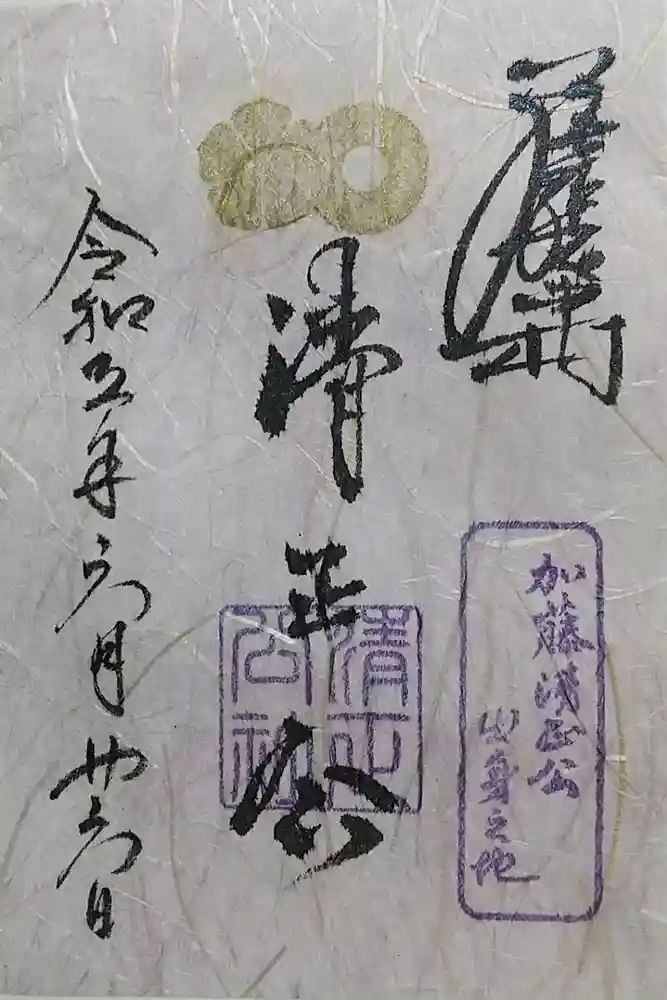 清正公
加藤清正公
出身之地
清正
公社
令和五年六月廿六日